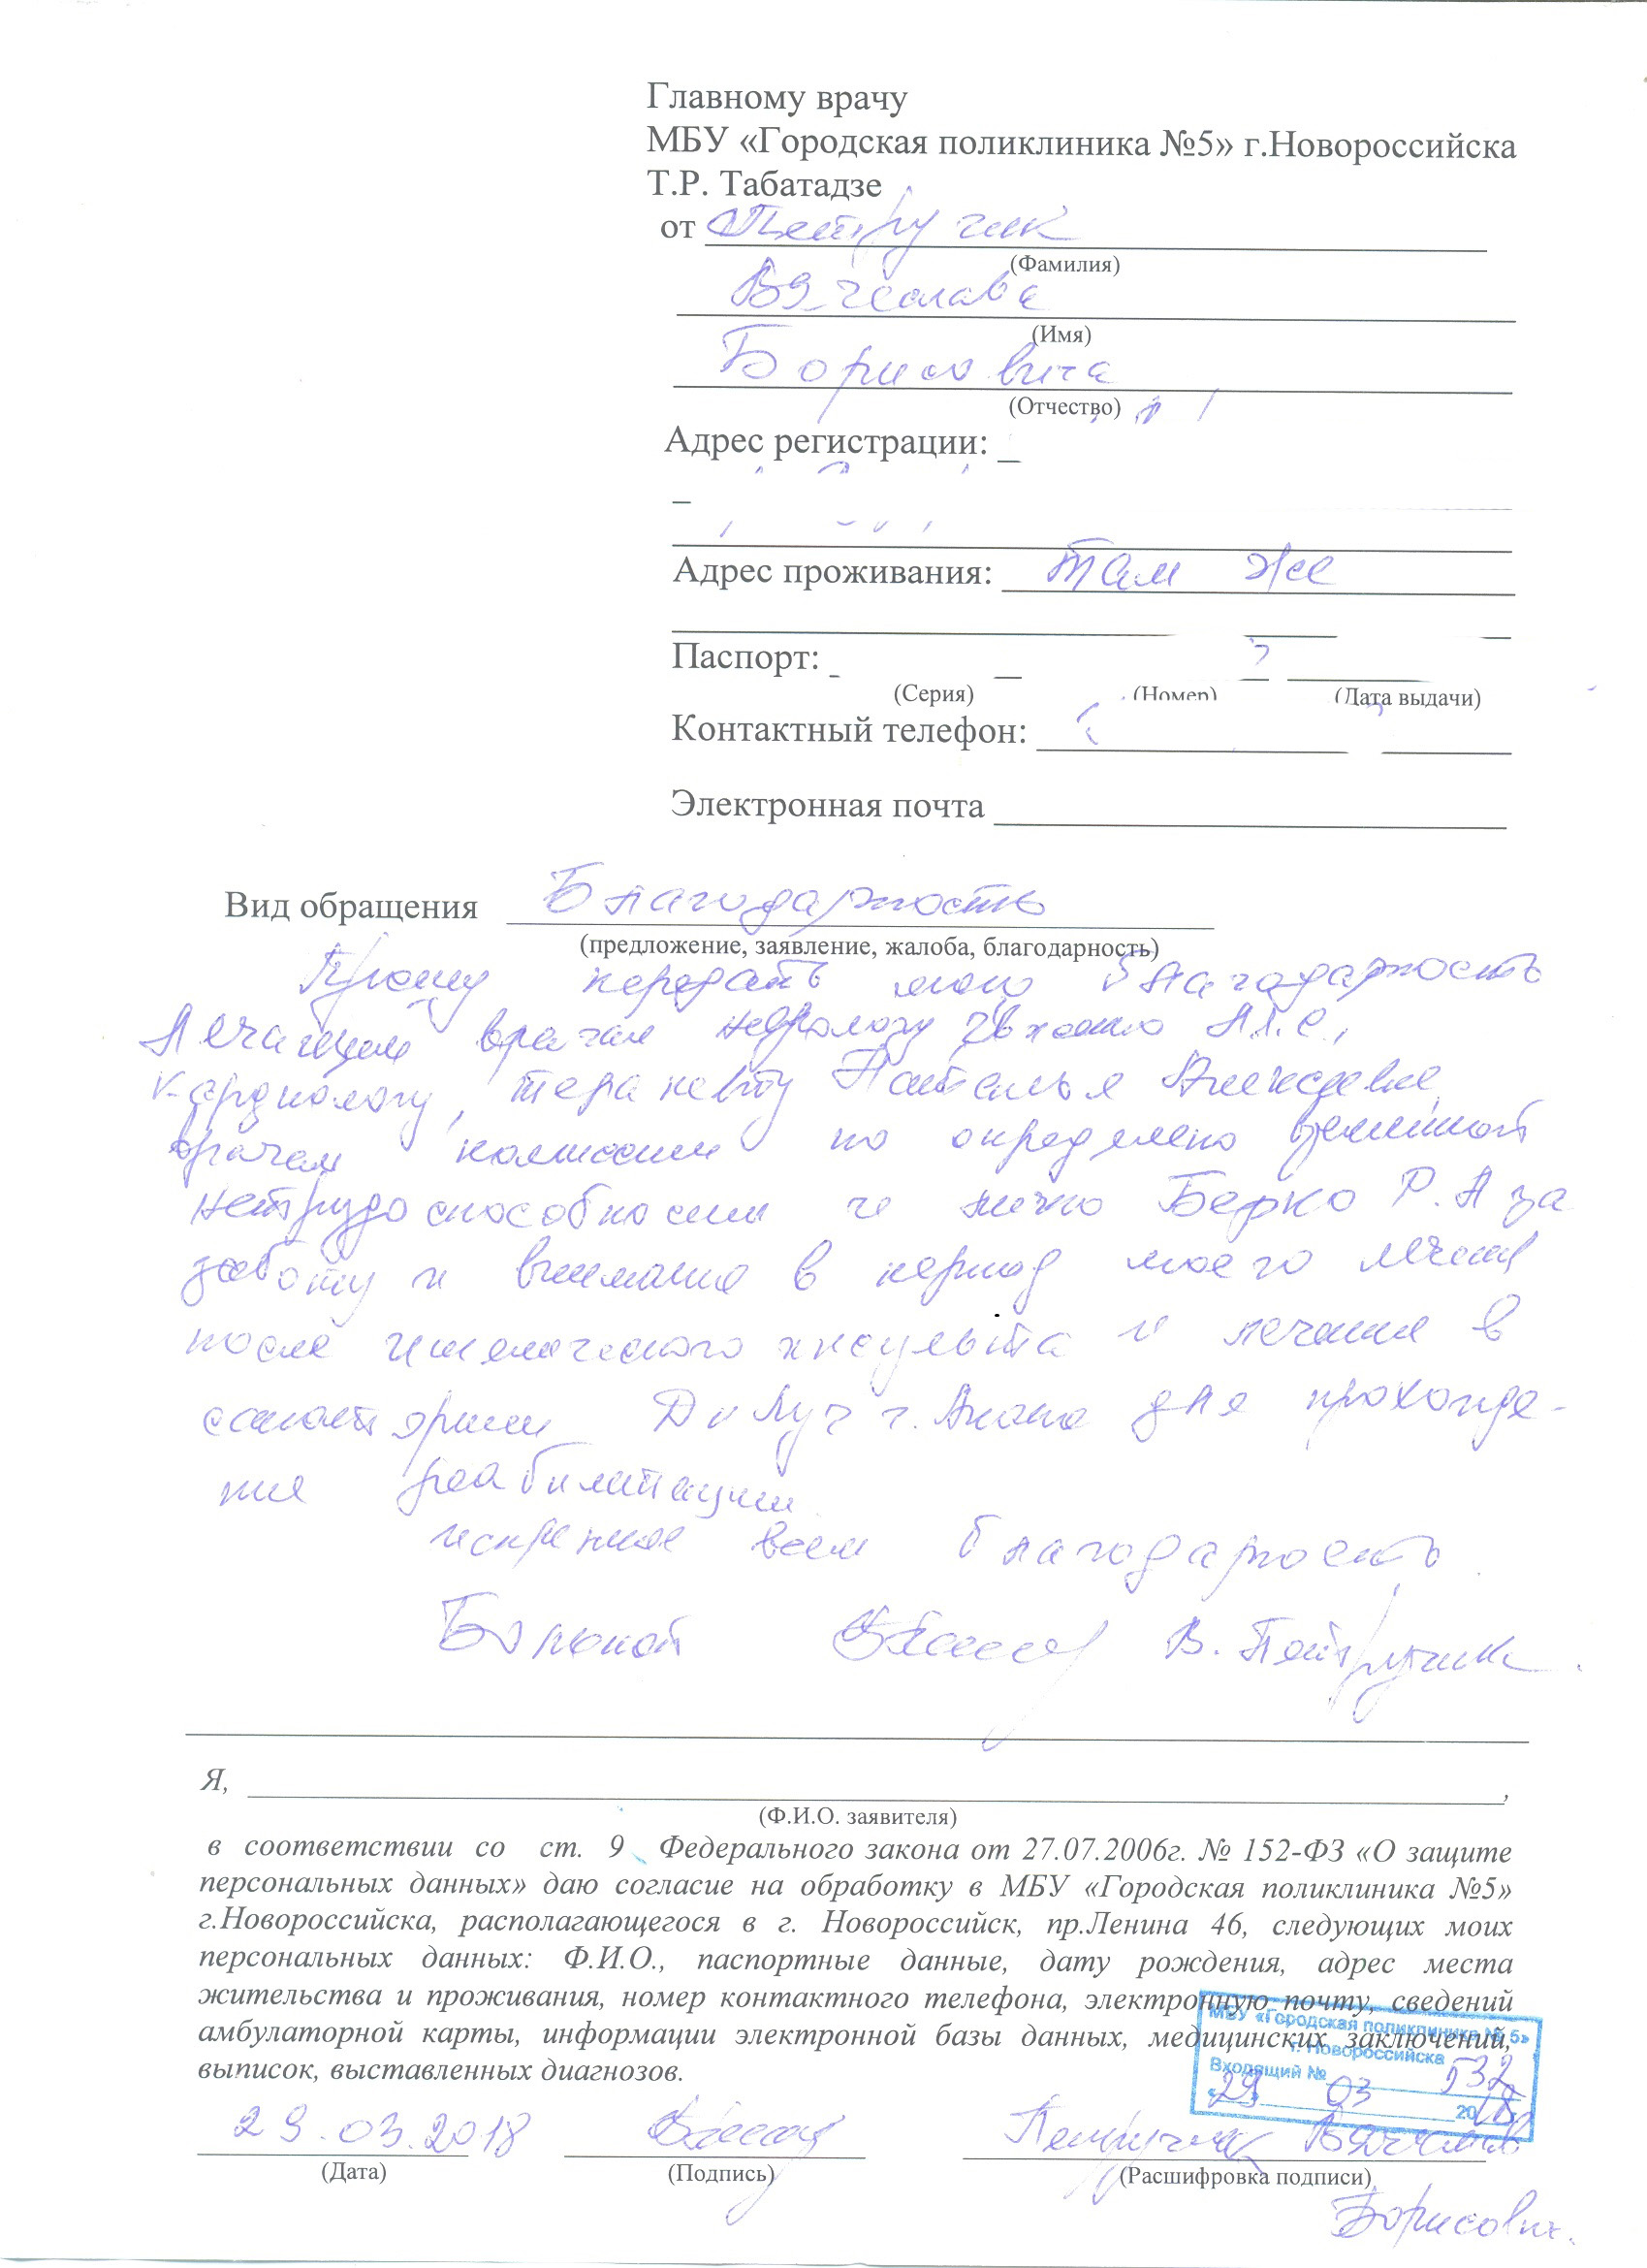 Главному врачу
МБУ «Городская поликлиника №5» г.Новороссийска
Т.Р. Табатадзе
от Петручик
(Фамилия)
Вячеслава
(Имя)
Борисовича
(Отчество)
Адрес регистрации:
Адрес проживания: Там же
Паспорт:
(Серия) (Номер) (Дата выдачи)
Контактный телефон:
Электронная почта
Вид обращения Благодарность
(предложение, заявление, жалоба, благодарность)
Прошу передать мою благодарность
лечащим врачам А.С.,
кардиологу, терапевту Наталья Алексеевне,
врачам комиссии по определено временной
нетрудоспособности и лично Берко Р.А за
заботу и внимание в период моего лечения
после ишемического инсульта и лечение в
санатории ДиЛуч г. Анапа для прохожде-
ния реабилитации.
искренне всем благодарность.
Больной В. Петручик.
Я, ,
(Ф.И.О. заявителя)
в соответствии со ст. 9 Федерального закона от 27.07.2006г. № 152-ФЗ «О защите
персональных данных» даю согласие на обработку в МБУ «Городская поликлиника №5»
г.Новороссийска, располагающегося в г. Новороссийск, пр.Ленина 46, следующих моих
персональных данных: Ф.И.О., паспортные данные, дату рождения, адрес места
жительства и проживания, номер контактного телефона, электронную почту, сведений
амбулаторной карты, информации электронной базы данных, медицинских заключений,
выписок, выставленных диагнозов.
МБУ «Городская поликлиника № 5»
г. Новороссийска
Входящий № 532
«29» 03 2018
29.03.2018 Петручик Вячеслав
(Дата) (Подпись) (Расшифровка подписи)
Борисович.